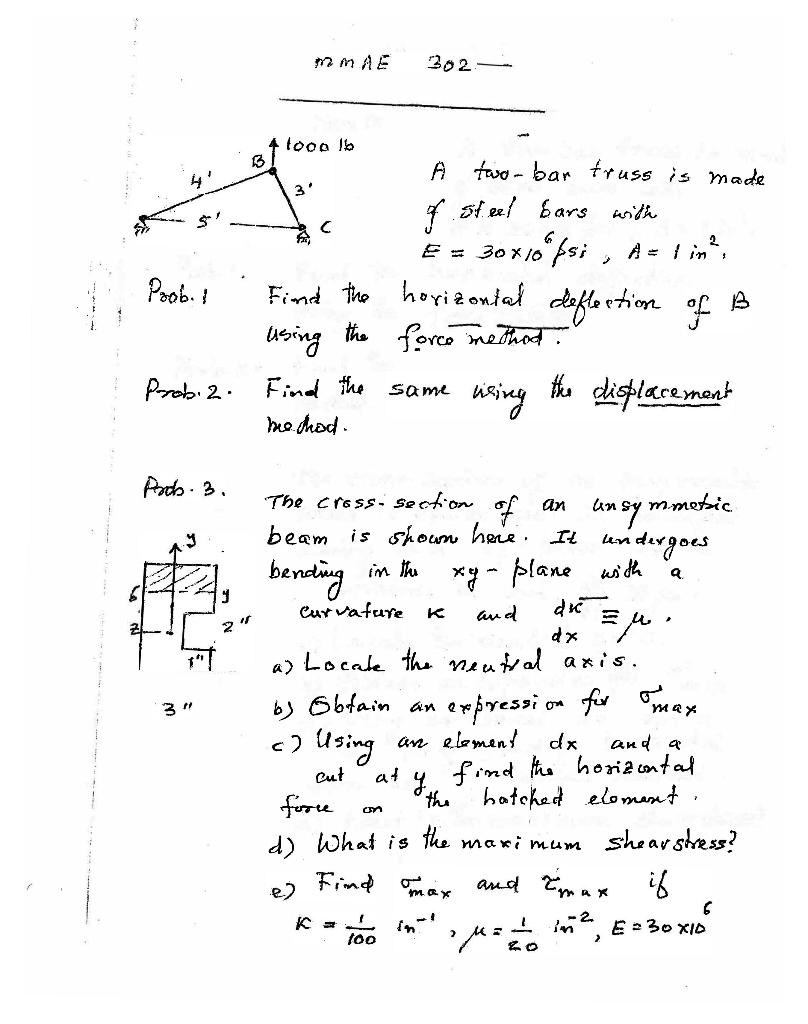 MMAE 302 —
1000 lb
B
4'
3'
5'
C
A two-bar truss is made
of steel bars with
E = 30×10⁶ psi , A = 1 in².
Prob. 1 Find the horizontal deflection of B
using the force method.
Prob. 2. Find the same using the displacement
method.
Prob. 3. The cross-section of an unsymmetric
beam is shown here. It undergoes
bending in the xy-plane with a
curvature κ and dκ/dx ≡ μ.
y
6
y
z
2"
1"
3"
a) Locate the neutral axis.
b) Obtain an expression for σmax
c) Using an element dx and a
cut at y find the horizontal
force on the hatched element.
d) What is the maximum shear stress?
e) Find σmax and τmax if
κ = 1/100 in⁻¹, μ = 1/20 in⁻², E = 30×10⁶